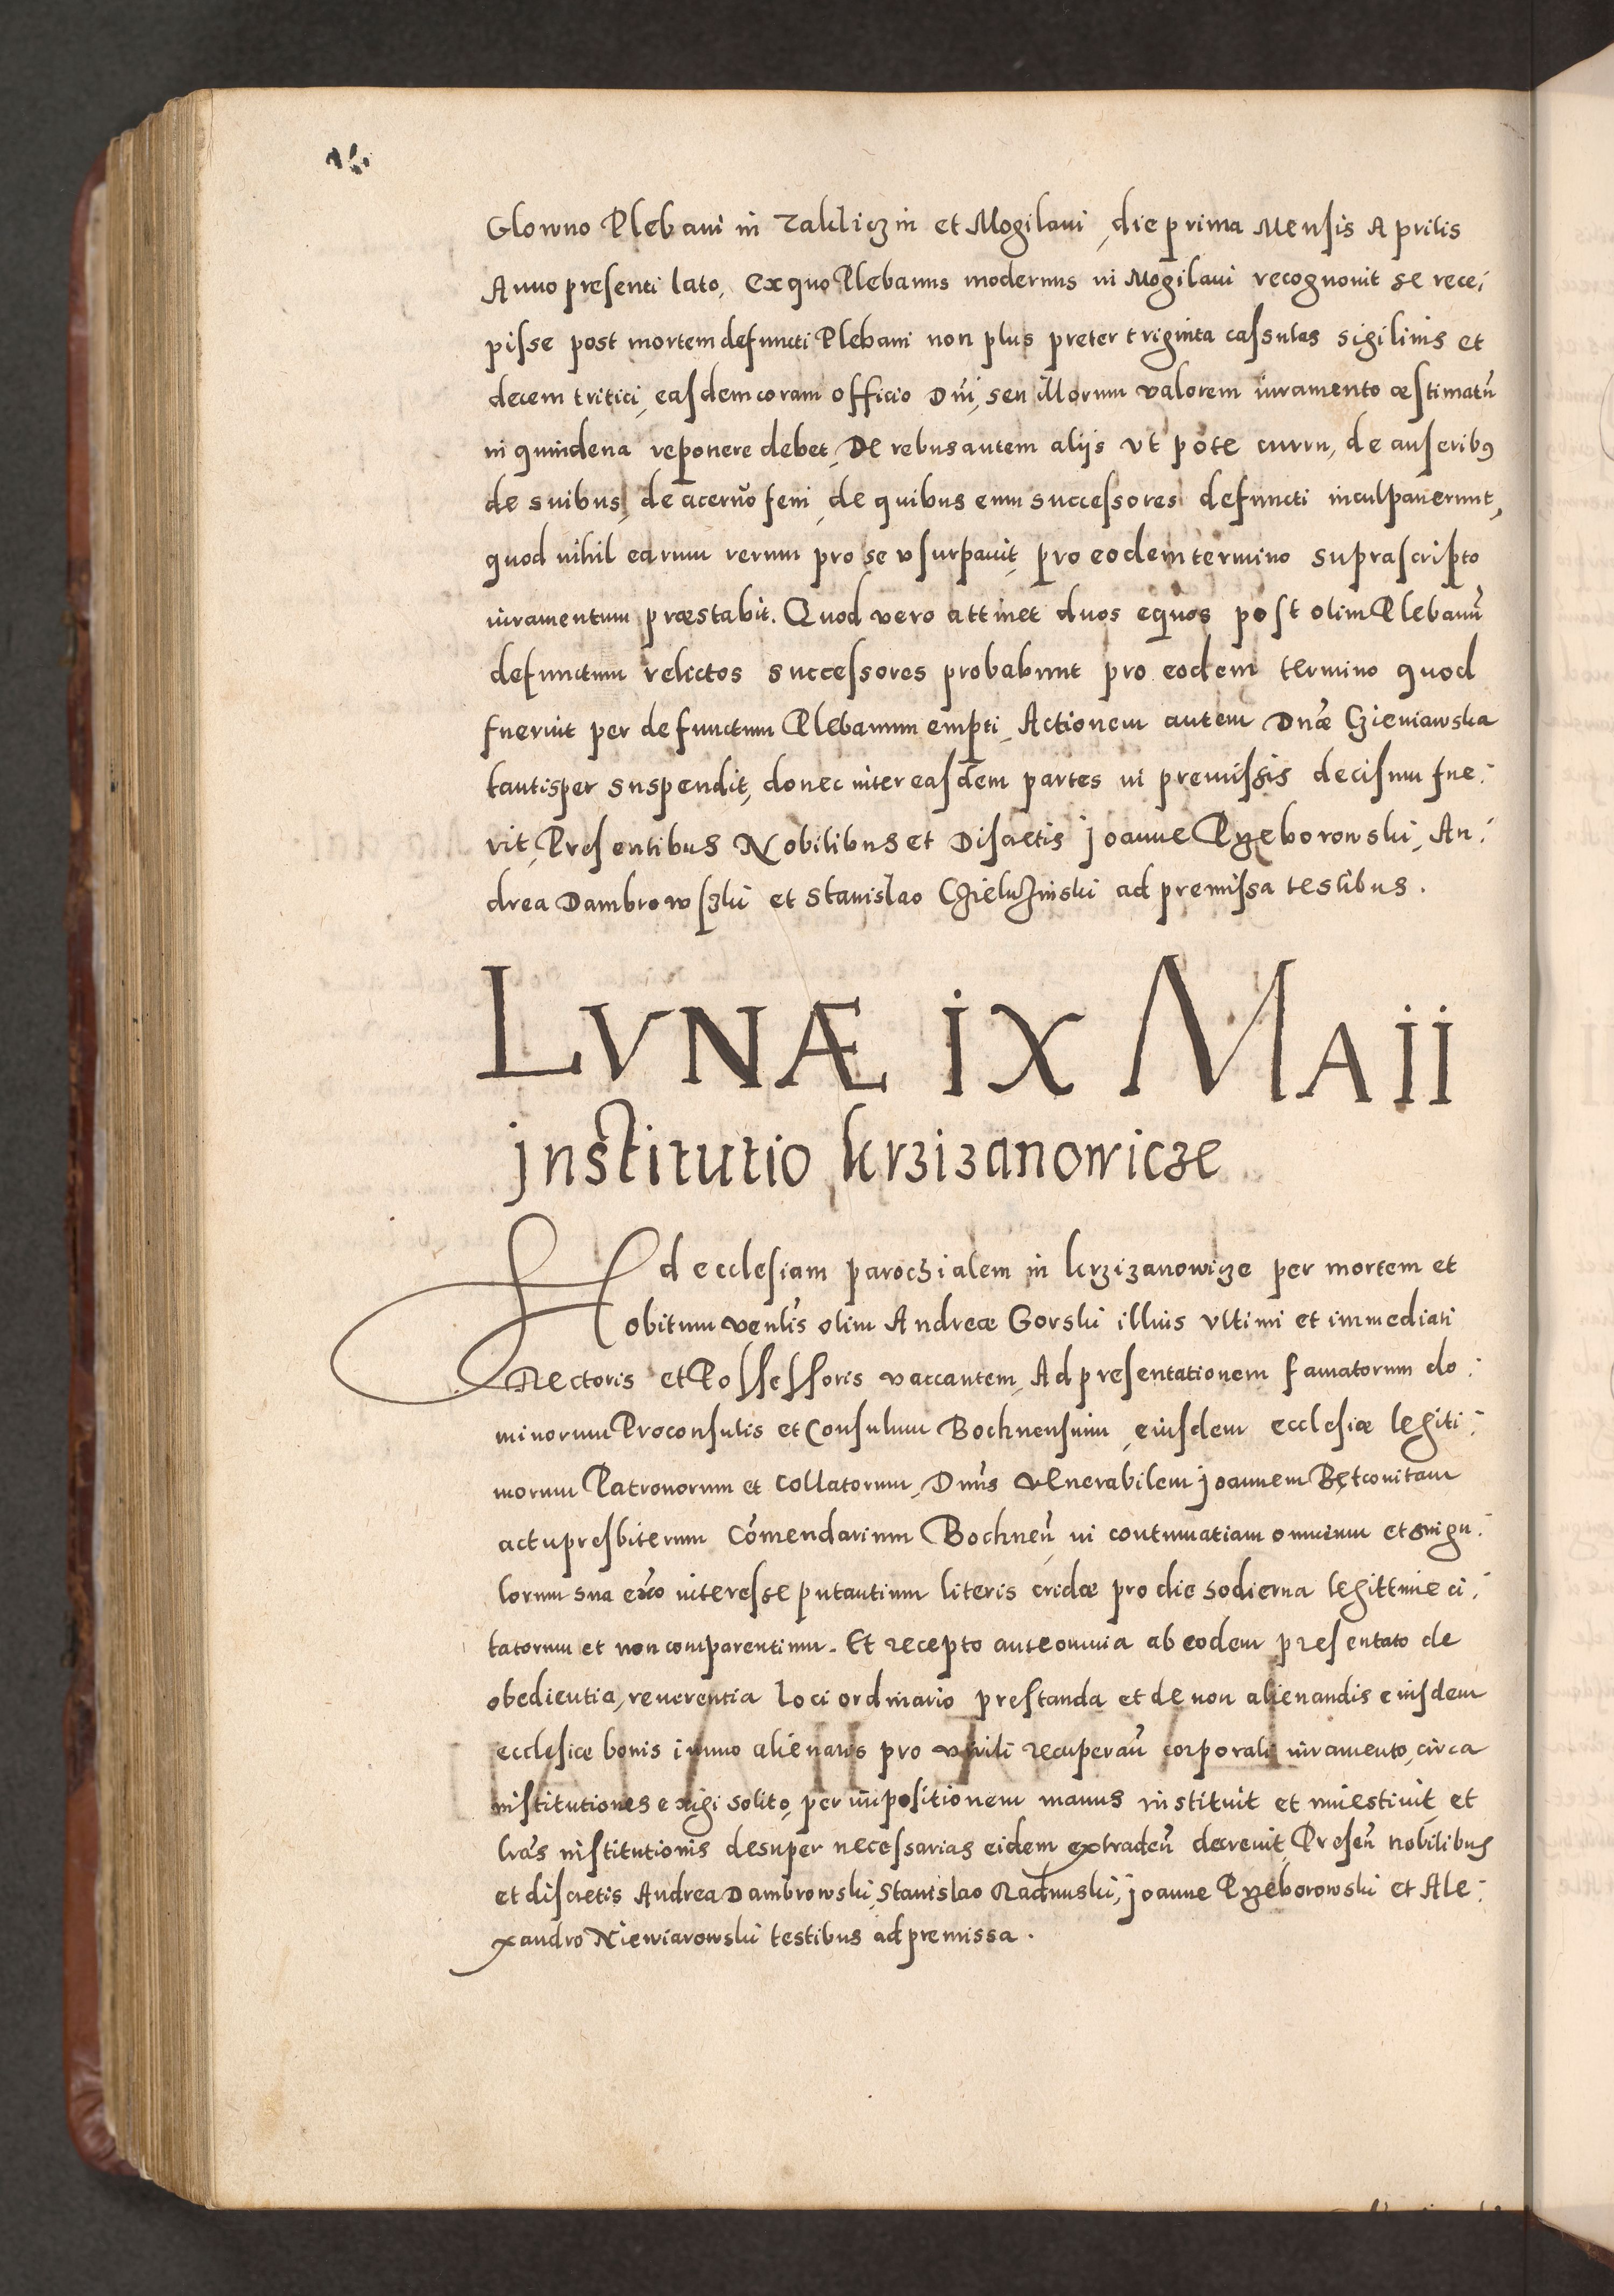 Glowno Plebani in Zakliczin et Mogilani, die prima Mensis Aprilis
Anno presenti lato, Ex quo Plebanus modernus in Mogilani recognovit se rece:
pisse post mortem defuncti Plebani non plus preter triginta cassulas sigilinis et
decem tritici, easdem coram officio Dni, seu illorum valorem iuramento æstimatū
in quindena reponere debet, De rebus autem aliis ut pote curru, de anseribꝰ
de suibus, de acervo feni, de quibus eum successores defuncti inculpaverunt,
quod nihil earum rerum pro se usurpavit, pro eodem termino suprascripto
iuramentum præstabit. Quod vero attinet duos equos post olim Plebanū
defunctum relictos successores probabunt pro eodem termino quod
fuerint per defunctum Plebanum empti, Actionem autem Dnæ Czieniawska
tantisper suspendit, donec inter easdem partes in premissis decisum fue:
rit, Presentibus Nobilibus et Discretis Joanne Pzeborowski, An:
drea Dambrowszki et Stanislao Czieluzinski ad premissa testibus.
LVNÆ IX MAII
Institutio krzizanowicze
Ad ecclesiam parochialem in krzizanowicze per mortem et
obitum venlis olim Andreæ Gorski illius ultimi et immediati
Rectoris et Possessoris vaccantem, Ad presentationem famatorum do:
minorum Proconsulis et Consulum Bochnensium, eiusdem ecclesiæ legiti:
morum Patronorum et Collatorum, Dnus venerabilem Joannem Bętconitam
actu presbiterum Comendarium Bochneñ in contumatiam omnium et singu:
lorum sua eẋo interesse putantium literis cridæ pro die hodierna legittime ci:
tatorum et non comparentium. Et recepto ante omnia ab eodem presentato de
obedientia, reverentia loci ordinario prestanda et de non alienandis eiusdem
ecclesiæ bonis immo alienatis pro virili recuperañ corporali iuramento, circa
institutiones exigi solito, per impositionem manus instituit et investivit, et
lras institutionis desuper necessarias eidem extradeñ decrevit, Preseñ nobilibus
et discretis Andrea Dambrowski, Stanislao Radunski, Joanne Pzeborowski et Ale:
xandro Niewiarowski testibus ad premissa.